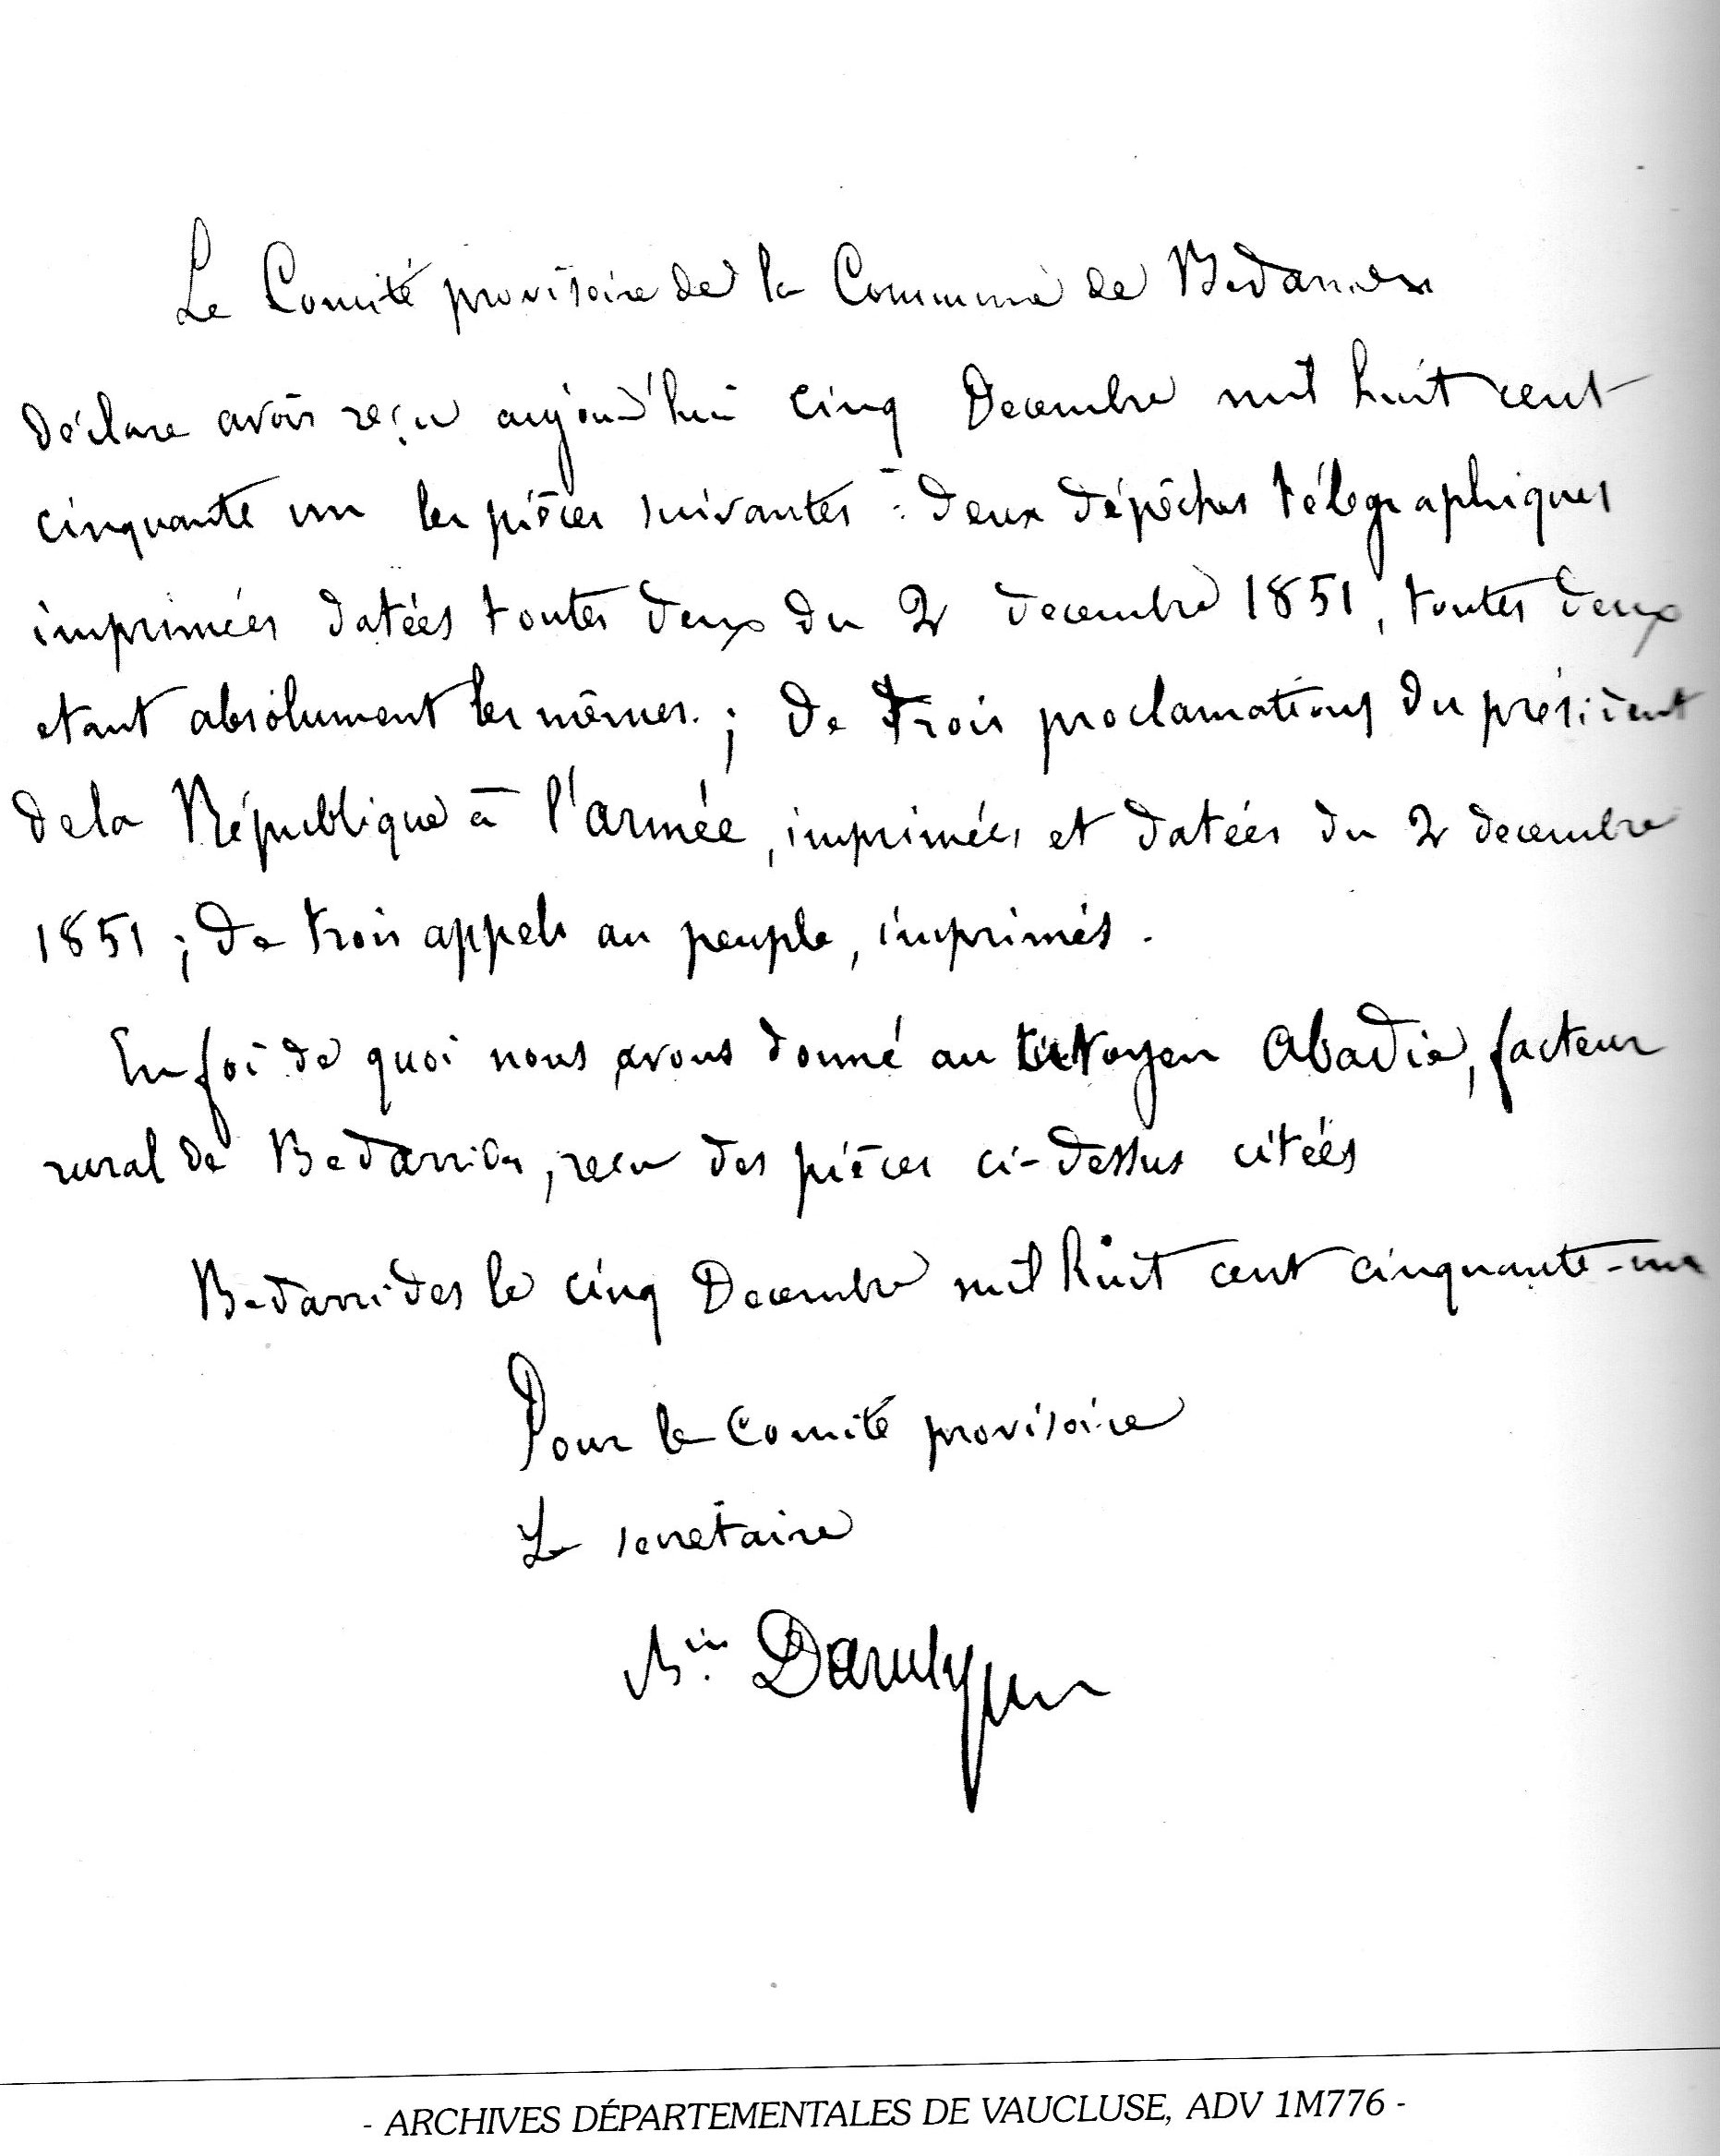 Le Comité provisoire de la Commune de Bedarrides
déclare avoir reçu aujourd'hui cinq Decembre mil huit cent
cinquante un les pièces suivantes : deux dépêches télégraphiques
imprimées datées toutes deux du 2 decembre 1851, toutes deux
etant absolument les mêmes. ; de trois proclamations du président
de la République à l'armée, imprimées et datées du 2 decembre
1851 ; de trois appels au peuple, imprimés.
En foi de quoi nous avons donné au citoyen Abadie, facteur
rural de Bedarrides, reçu des pièces ci-dessus citées
Bedarrides le cinq Decembre mil huit cent cinquante-un
Pour le Comité provisoire
Le secretaire
- ARCHIVES DÉPARTEMENTALES DE VAUCLUSE, ADV 1M776 -